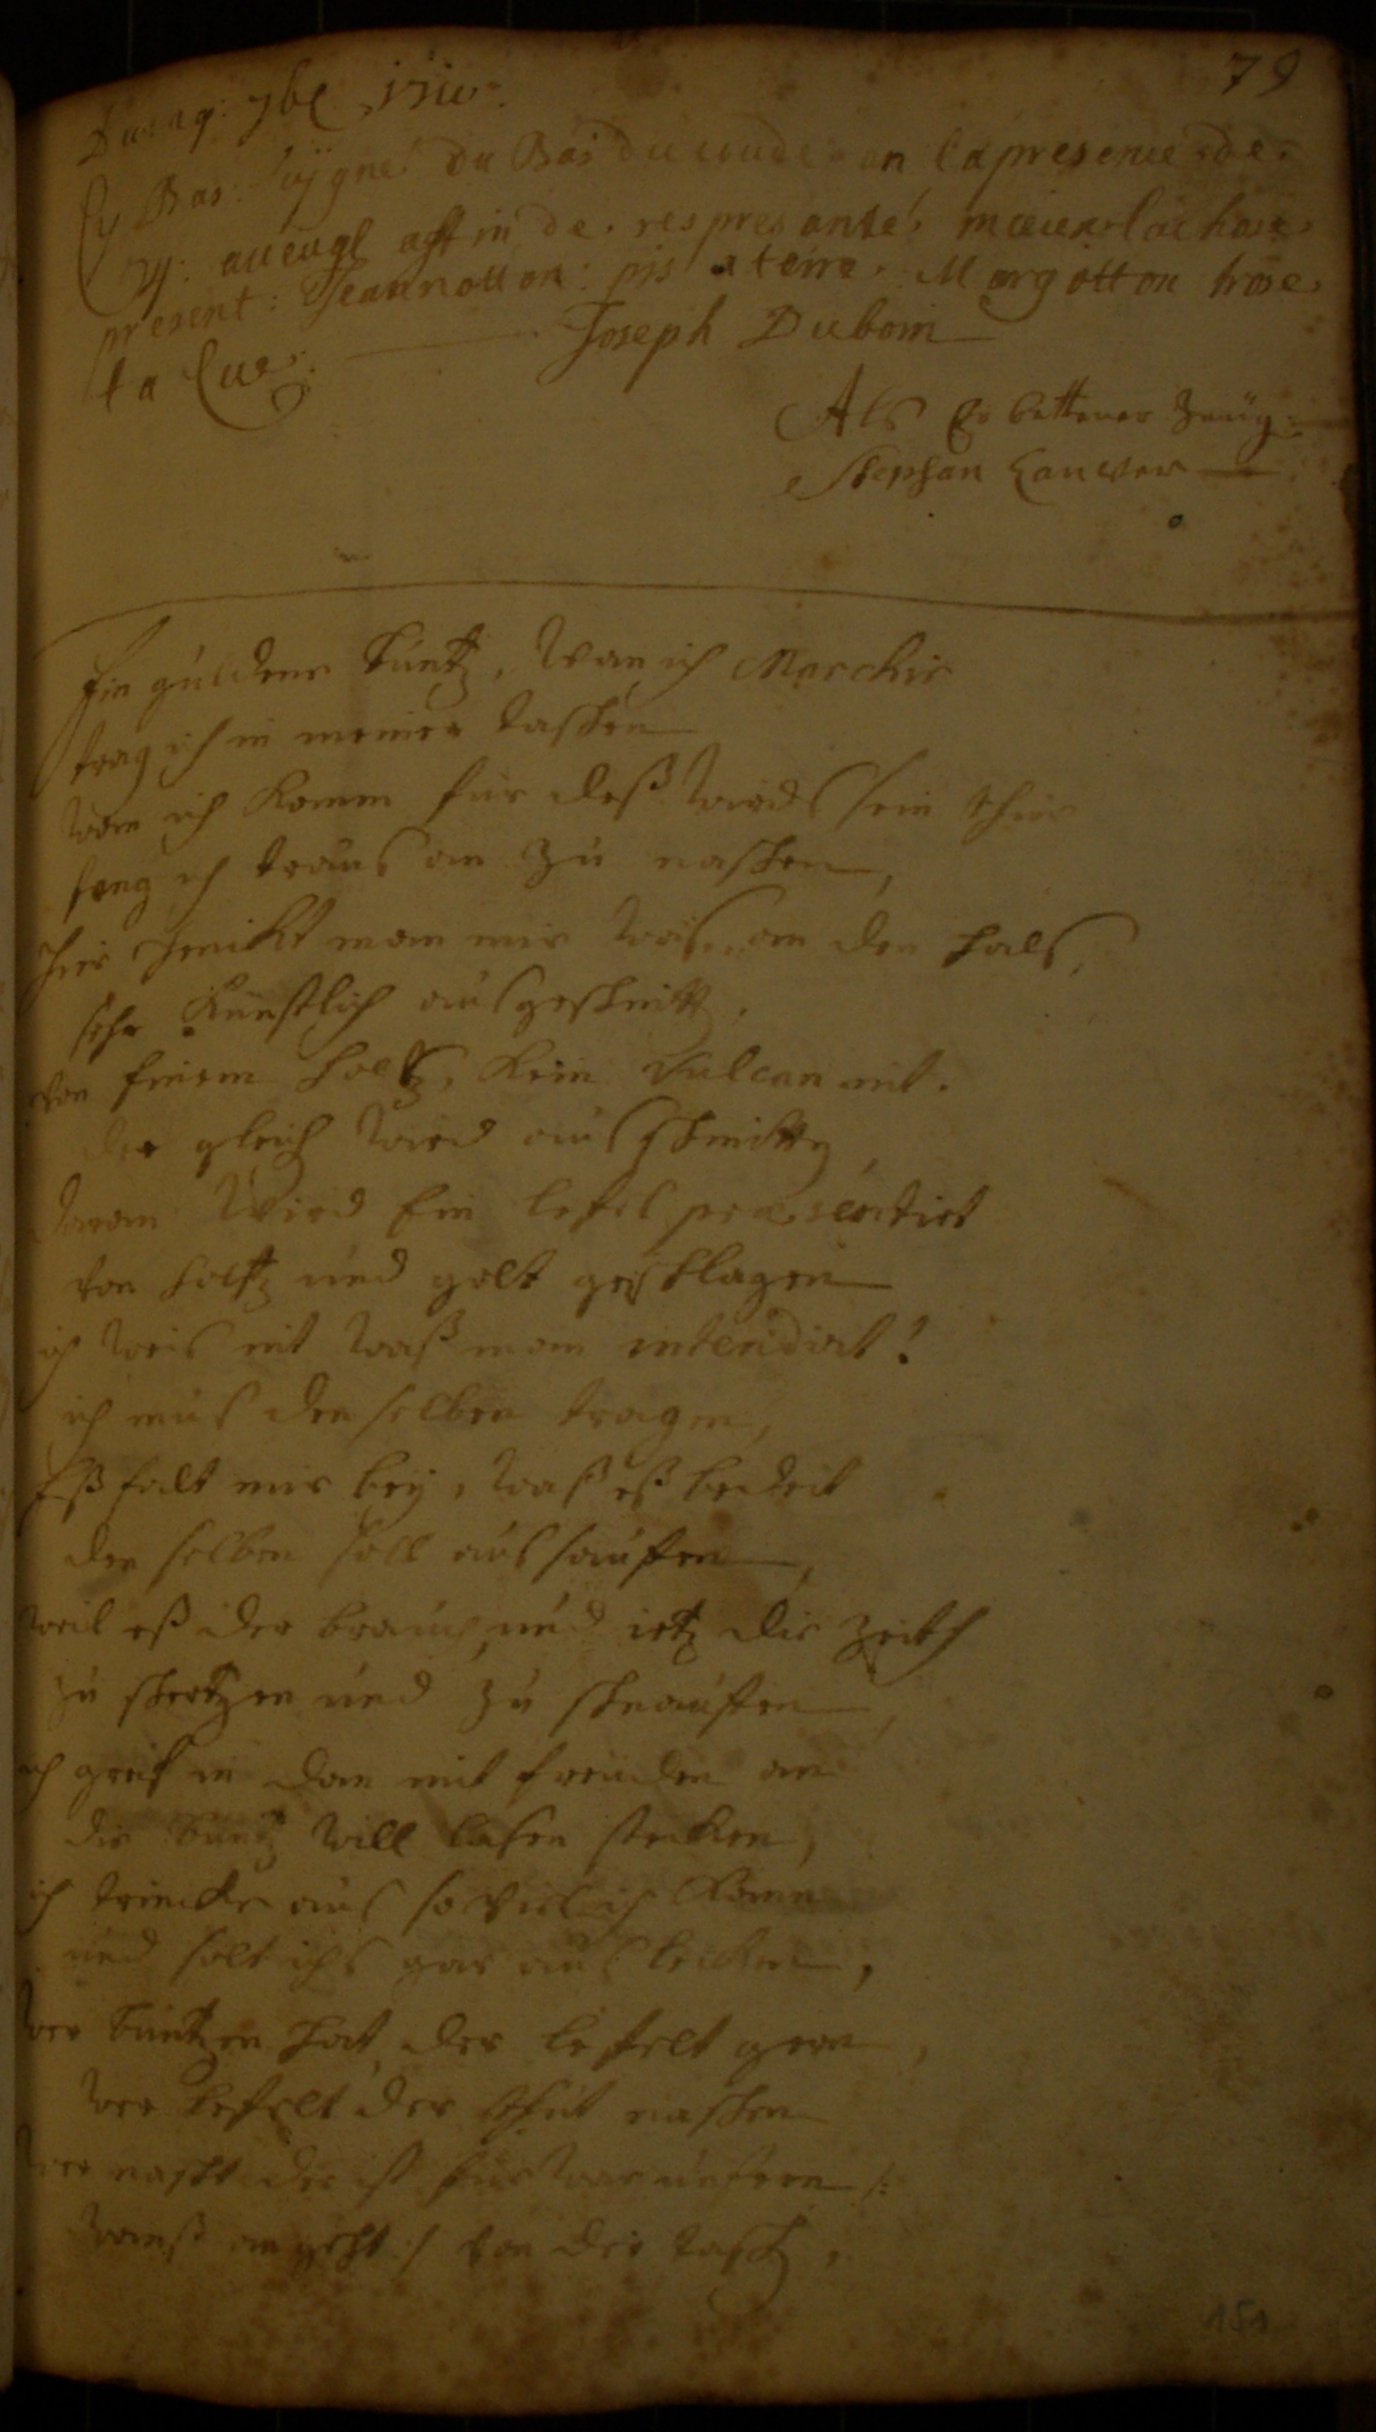 79
Du 29: 7be 1710:
Cy Bas: süÿgne Du Bas du coude an la presence de
aueugl affin de respresanté mieux la chose
present: Jeannotton: pis a terre. Margotton trose
ta Cue: Joseph Dubom
Als Erbettener Zeüg:
Stephan Lanver
Ein guldene büntz, wan ich Marchir
trag ich in meiner taschen
wan ich komm für deß wirds sein thür
fang ich traus an zu naschen,
hir henckt man mir was an den hals,
sehr künstlich ausgeschnitt,
von feinem holtz, kein Vulcan nit.
der gleich wird aus schnitten,
daran wird Ein lefel præsentirt
von holtz und golt geschlagen
ich weis nit waß man intendirt!
ich mus den selben tragen,
Eß falt mir beÿ, waß eß bedeit
den selben soll aus saufen,
weil eß der brauch, und ietz die zeith
zu schertzen und zu schnaufen,
ich greif in dan mit freuden an
die büntz will lasen stecken,
ich trincke aus so viel ich kann
und solt ichs gar aus lecken,
wer büntzen hat, der lefelt gern,
wer lefelt der thut naschen
wer nascht der ist für war unfern /:
wanß an geht :/ von der tasch,
151